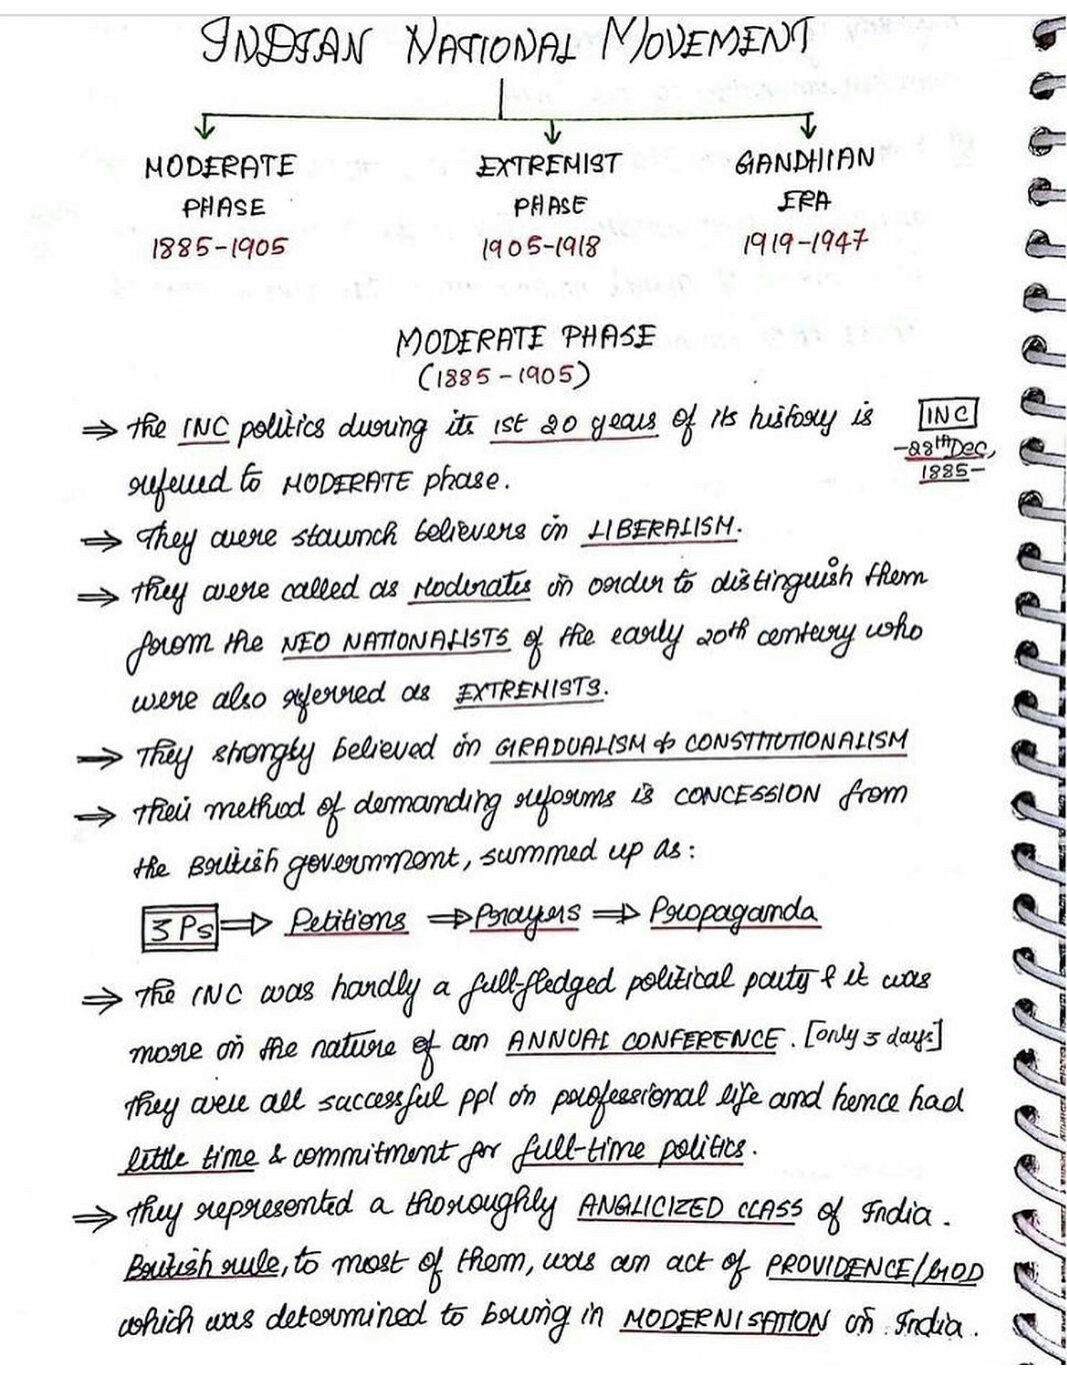 INDIAN NATIONAL MOVEMENT
MODERATE PHASE 1885-1905
EXTREMIST PHASE 1905-1918
GANDHIAN ERA 1919-1947
MODERATE PHASE
(1885-1905)
⇒ the INC politics during its 1st 20 years of its history is
referred to MODERATE phase.
INC
-28th Dec,
1885-
⇒ They were staunch believers in LIBERALISM.
⇒ they were called as Moderates in order to distinguish them
from the NEO NATIONALISTS of the early 20th century who
were also referred as EXTREMISTS.
⇒ They strongly believed in GRADUALISM & CONSTITUTIONALISM
⇒ Their method of demanding reforms is CONCESSION from
the British government, summed up as:
3 Ps ⇒ Petitions ⇒ Prayers ⇒ Propaganda
⇒ The INC was hardly a full-fledged political party & it was
more in the nature of an ANNUAL CONFERENCE. [only 3 days]
They were all successful ppl in professional life and hence had
little time & commitment for full-time politics.
⇒ they represented a thoroughly ANGLICIZED CLASS of India.
British rule, to most of them, was an act of PROVIDENCE/GOD
which was determined to bring in MODERNISATION in India.